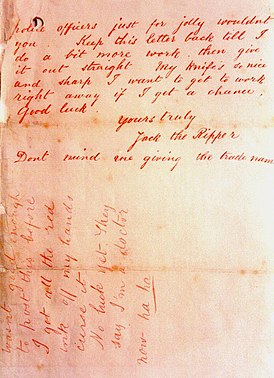 police officers just for jolly wouldnt
you. Keep this letter back till I
do a bit more work then give
it out straight My knife's so nice
and sharp I want to get to work
right away if I get a chance.
Good luck
Yours truly
Jack the Ripper
Dont mind me giving the trade name
wasnt good enough
to post this before
I got all the red
ink off my hands
curse it
No luck yet. They
say I'm a doctor
now ha ha